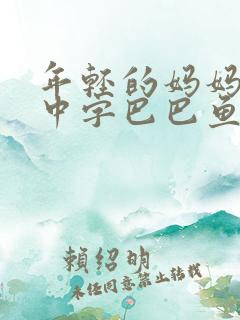 年轻的妈妈
中字巴巴鱼
賴紹明
未经同意禁止转载